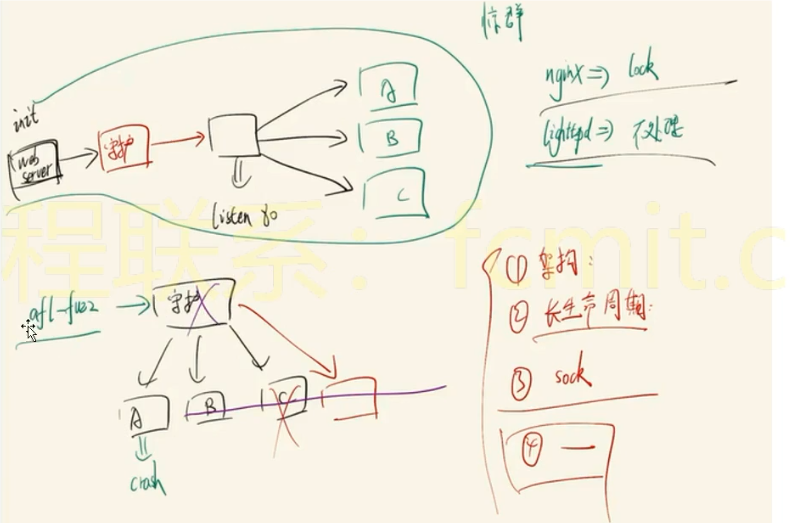 惊群
nginx => lock
lighttpd => 不处理
init
web server
守护
A
B
C
listen 80
程联系: fcmit.c
afl-fuzz
守护
A
B
C
crash
① 架构:
② 长生命周期:
③ sock
④ —